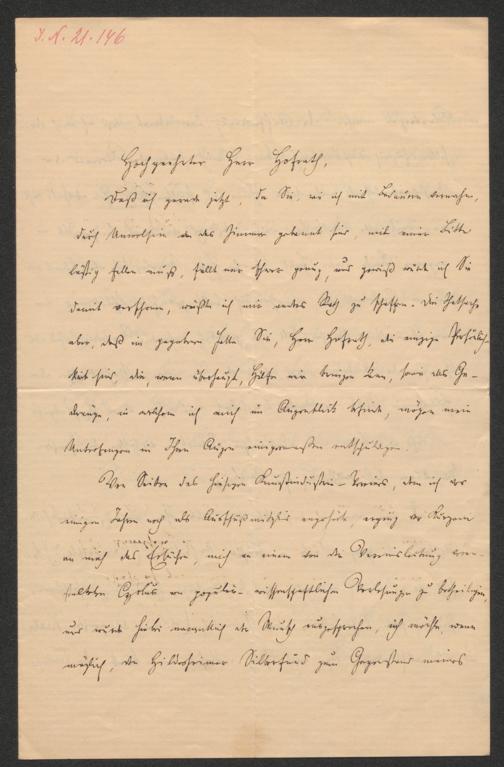 I. N. 21.146
Hochgeehrter Herr Hofrath,
Daß ich gerade jetzt, da Sie, wie ich mit Bedauern vernahm,
durch Unwohlsein an das Zimmer gebannt sind, mit einer Bitte
lästig fallen muß, fällt mir schwer genug, und gewiß würde ich Sie
damit verschonen, wüßte ich mir anders Rath zu schaffen. Die Thatsache
aber, daß im gegebenen Falle Sie, Herr Hofrath, die einzige Persönlich-
keit sind, die, wenn überhaupt, Hilfe mir bringen kann, sowie das Ge-
dränge, in welchem ich mich im Augenblick befinde, mögen mein
Unterfangen in Ihren Augen einigermaßen entschuldigen.
Von Seiten des hiesigen Kunstindustrie-Vereins, dem ich vor
einigen Jahren noch als Ausschußmitglied angehörte, erging vor Kurzem
an mich das Ersuchen, mich an einem von der Vereinsleitung veran-
stalteten Cyclus von populär-wissenschaftlichen Vorlesungen zu betheiligen,
und wurde hiebei namentlich der Wunsch ausgesprochen, ich möchte, wenn
möglich, den Hildesheimer Silberfund zum Gegenstand meines